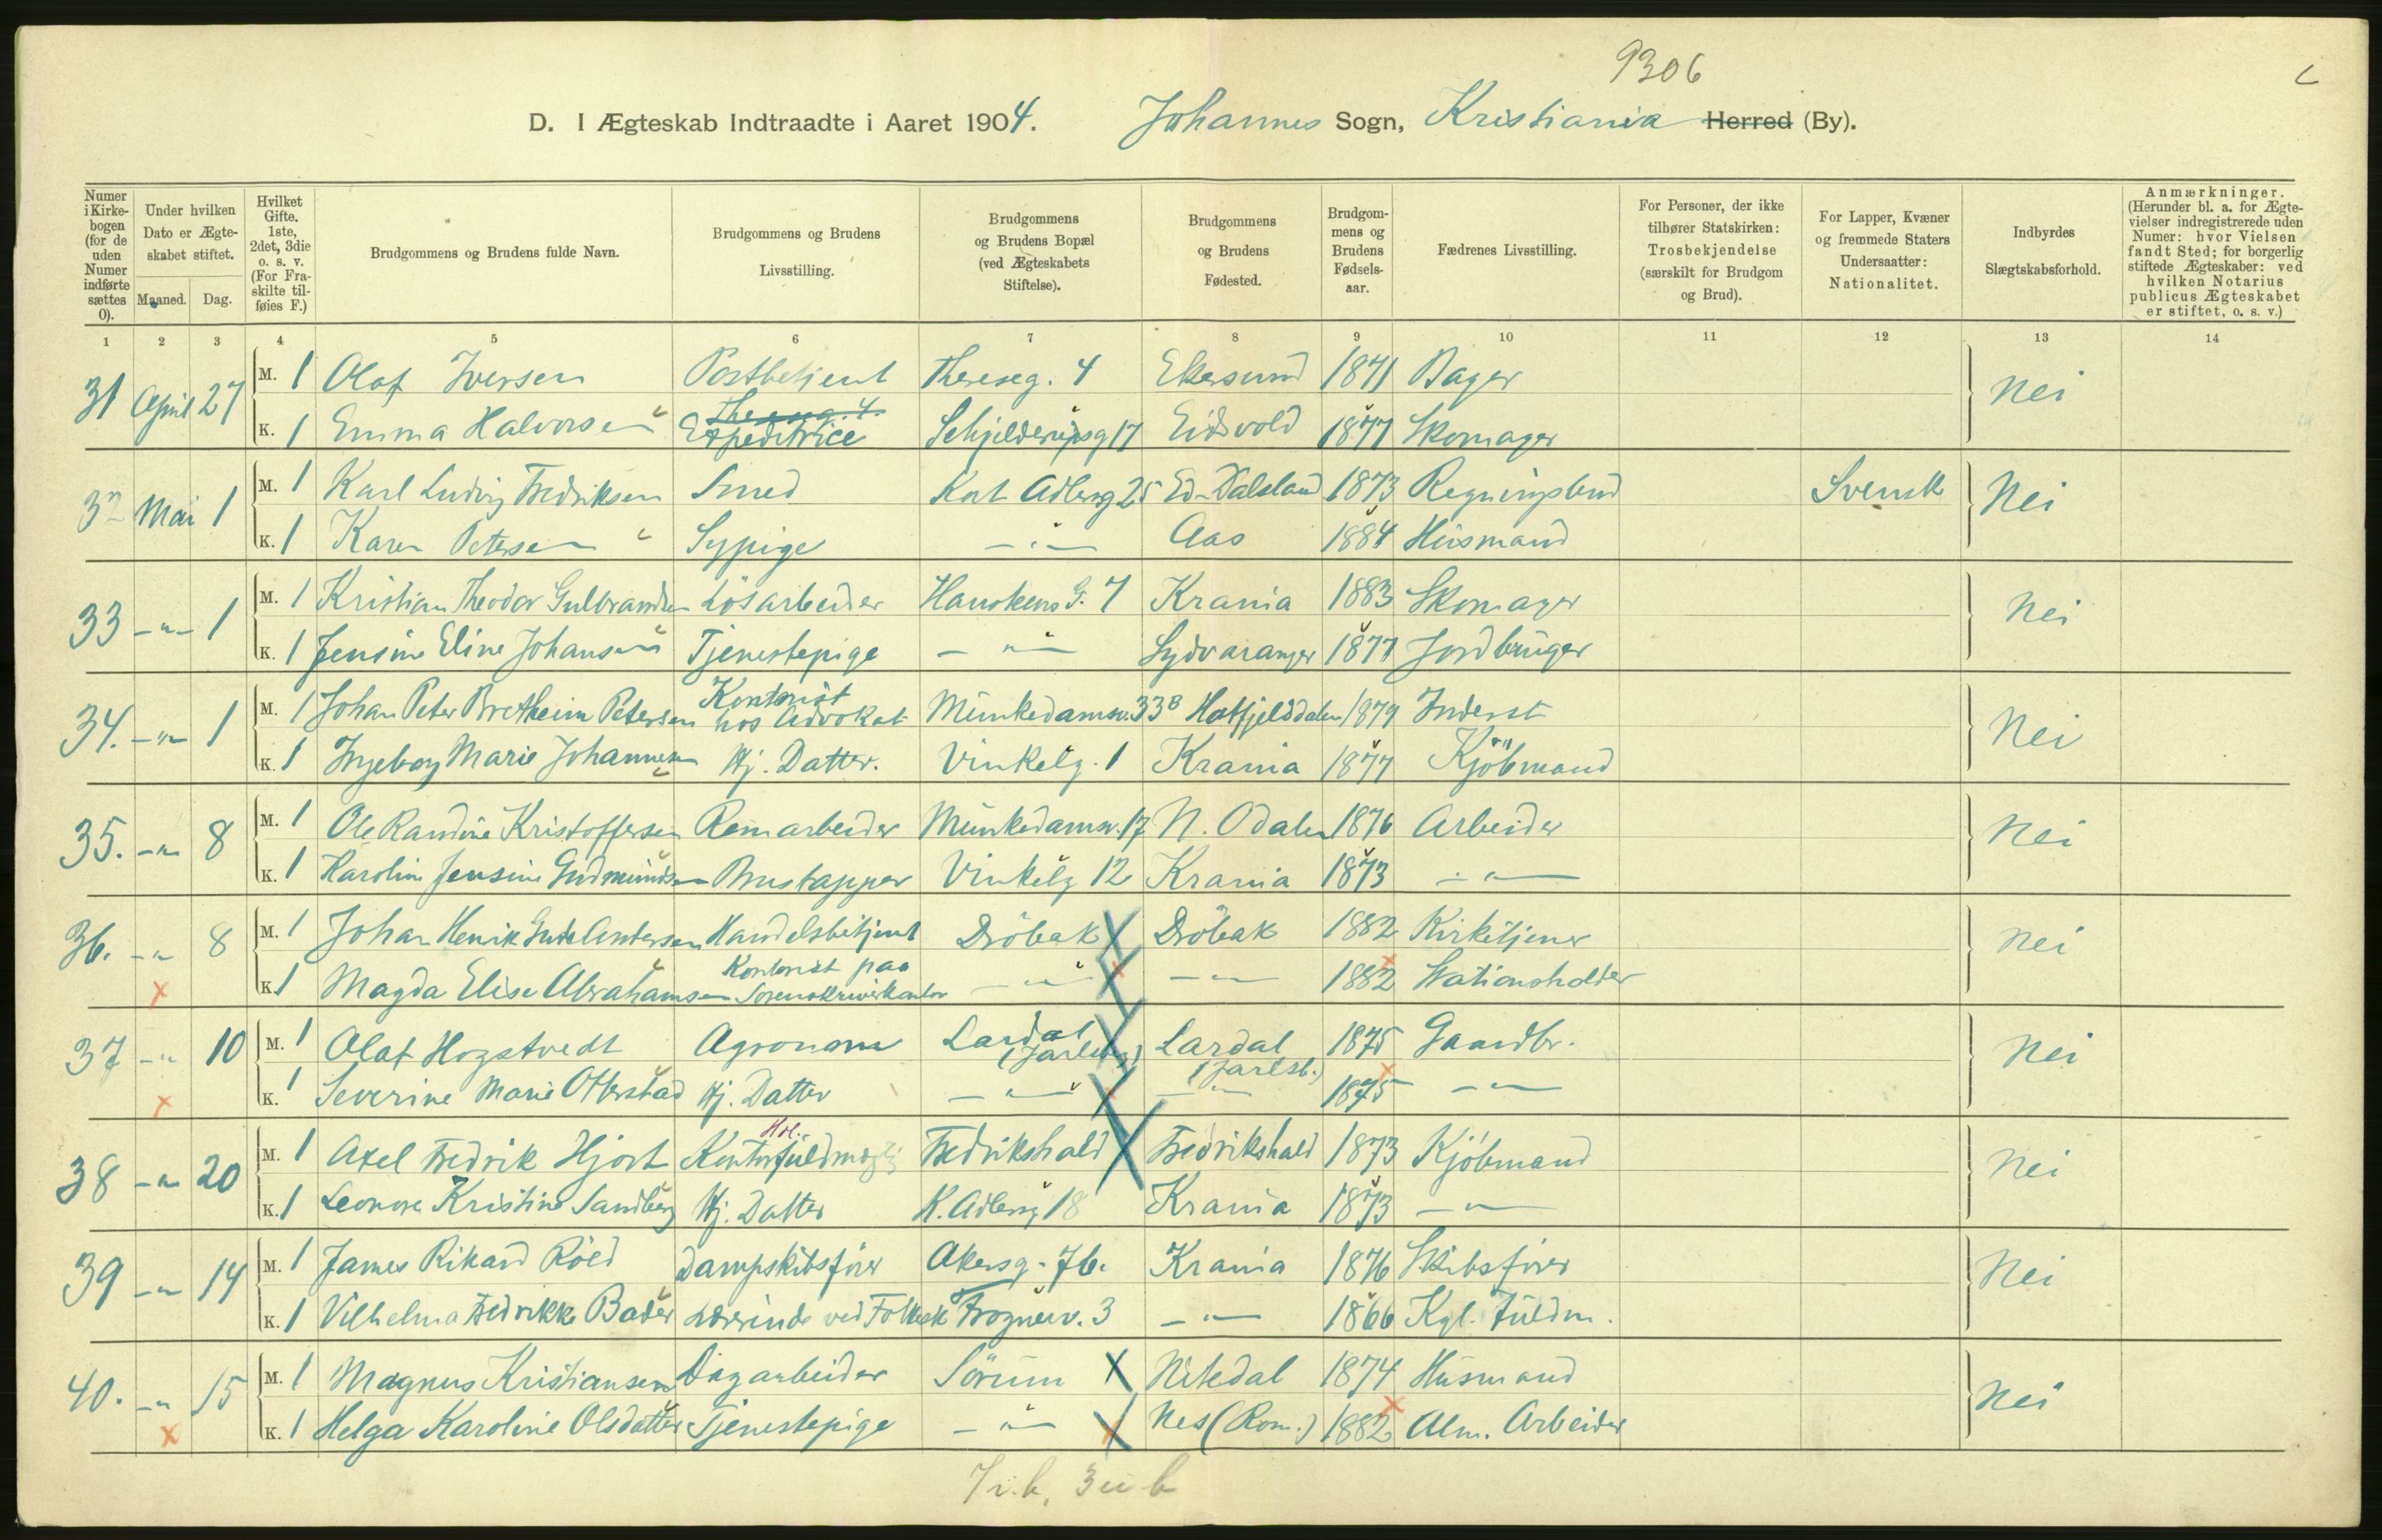 9306
D. I Ægteskab Indtraadte i Aaret 1904. Johannes Sogn, Kristiania Herred (By).
Numer i Kirkebogen (for de uden Numer indførte sættes 0).
Under hvilken Dato er Ægteskabet stiftet.
Maaned. Dag.
Hvilket Gifte. 1ste, 2det, 3die o. s. v. (For Fraskilte tilføies F.)
Brudgommens og Brudens fulde Navn.
Brudgommens og Brudens Livsstilling.
Brudgommens og Brudens Bopæl (ved Ægteskabets Stiftelse).
Brudgommens og Brudens Fødested.
Brudgommens og Brudens Fødselsaar.
Fædrenes Livsstilling.
For Personer, der ikke tilhører Statskirken: Trosbekjendelse (særskilt for Brudgom og Brud).
For Lapper, Kvæner og fremmede Staters Undersaatter: Nationalitet.
Indbyrdes Slægtskabsforhold.
Anmærkninger. (Herunder bl. a. for Ægtevielser indregistrerede uden Numer: hvor Vielsen fandt Sted; for borgerlig stiftede Ægteskaber: ved hvilken Notarius publicus Ægteskabet er stiftet, o. s. v.)
1 2 3 4 5 6 7 8 9 10 11 12 13 14
31 April 27 M. 1 Olaf Iversen Postbetjent Thereseg. 4 Ekersund 1871 Bager Nei
K. 1 Emma Halvorsen Thereseg. 4. Expeditrice Schjelderupsg 17 Eidsvold 1877 Skomager
32 Mai 1 M. 1 Karl Ludvig Fredriksen Smed Kort Adlersg 25 Ed-Dalsland 1873 Regningsbud Svensk Nei
K. 1 Karen Petersen Sypige -"- Aas 1884 Husmand
33 -"- 1 M. 1 Kristian Theodor Gulbrandsen Løsarbeider Hauskens G. 7 Krania 1883 Skomager Nei
K. 1 Jensine Eline Johansen Tjenestepige -"- Sydvaranger 1877 Jordbruger
34. -"- 1 M. 1 Johan Peter Bretheim Petersen Kontorist hos Advokat Munkedamsv. 33B Hatfjelddalen 1879 Inderst Nei
K. 1 Ingeborg Marie Johannesen Hj. Datter. Vinkelg. 1 Krania 1877 Kjöbmand
35. -"- 8 M. 1 Ole Randine Kristoffersen Remarbeider Munkedamsv. 17 N. Odalen 1876 Arbeider Nei
K. 1 Karoline Jensine Gudmundsen Brustapper Vinkelg 12 Krania 1873 -"-
36. -"- 8 M. 1 Johan Henrik Gude Andersen Handelsbetjent Dröbak Dröbak 1882 Kirketjener Nei
K. 1 Magda Elise Abrahamsen Kontorist paa Sorenskriverkontor -"- -"- 1882 Stationsholder
37 -"- 10 M. 1 Olaf Hogstvedt Agronom Lardal (Jarlsberg) Lardal (Jarlsb.) 1875 Gaardbr. Nei
K. 1 Severine Marie Otterstad Hj. Datter -"- -"- 1875 -"-
38 -"- 20 M. 1 Axel Fredrik Hjort Kontorfuldmægtig Fredrikshald Fredrikshald 1873 Kjöbmand Nei
K. 1 Leonora Kristine Sandberg Hj. Datter K. Adlersg 18 Krania 1873 -"-
39 -"- 14 M. 1 James Rikard Röed Dampskibsfører Akersg. 76. Krania 1876 Skibsfører Nei
K. 1 Vilhelma Fredrikke Bader Lærerinde ved Folkesk Frognerv. 3 -"- 1866 Kgl. Fuldm.
40. -"- 15 M. 1 Magnus Kristiansen Dagarbeider Sörum Nitedal 1874 Husmand Nei
K. 1 Helga Karoline Olsdatter Tjenestepige -"- Nes (Rom.) 1882 Alm. Arbeider
7 i.b, 3 u.b